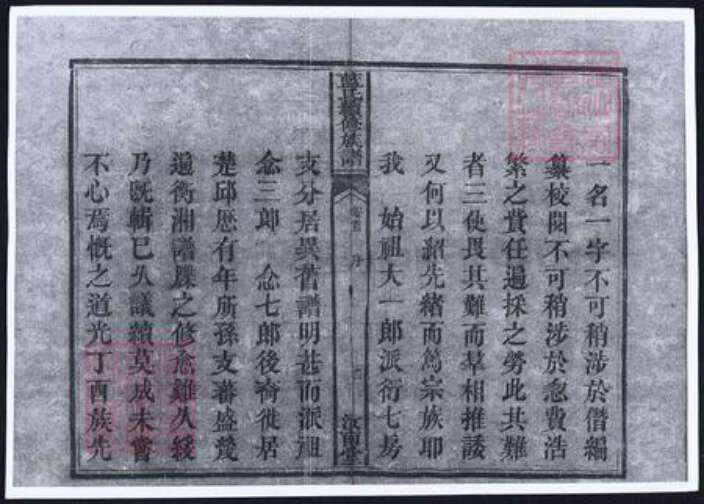 一名一字不可稍涉於僭編
纂校閱不可稍涉於忽費浩
繁之費任遍採之勞此其難
者三使畏其難而羣相推諉
又何以紹先緒而篤宗族耶
我 始祖大一郎派衍七房
藍氏續修族譜
卷首 序
汝南堂
支分居異舊譜明甚而派祖
念三郎 念七郎後裔徙居
楚邱歷有年所孫支蕃盛幾
遍衡湘譜牒之修愈難久緩
乃既輯已久議續莫成未嘗
不心焉慨之道光丁酉族先